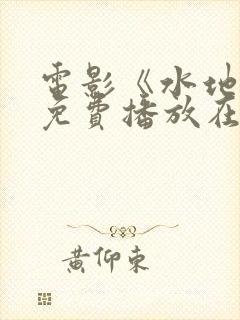 电影《水地
免费播放在
黄仰东